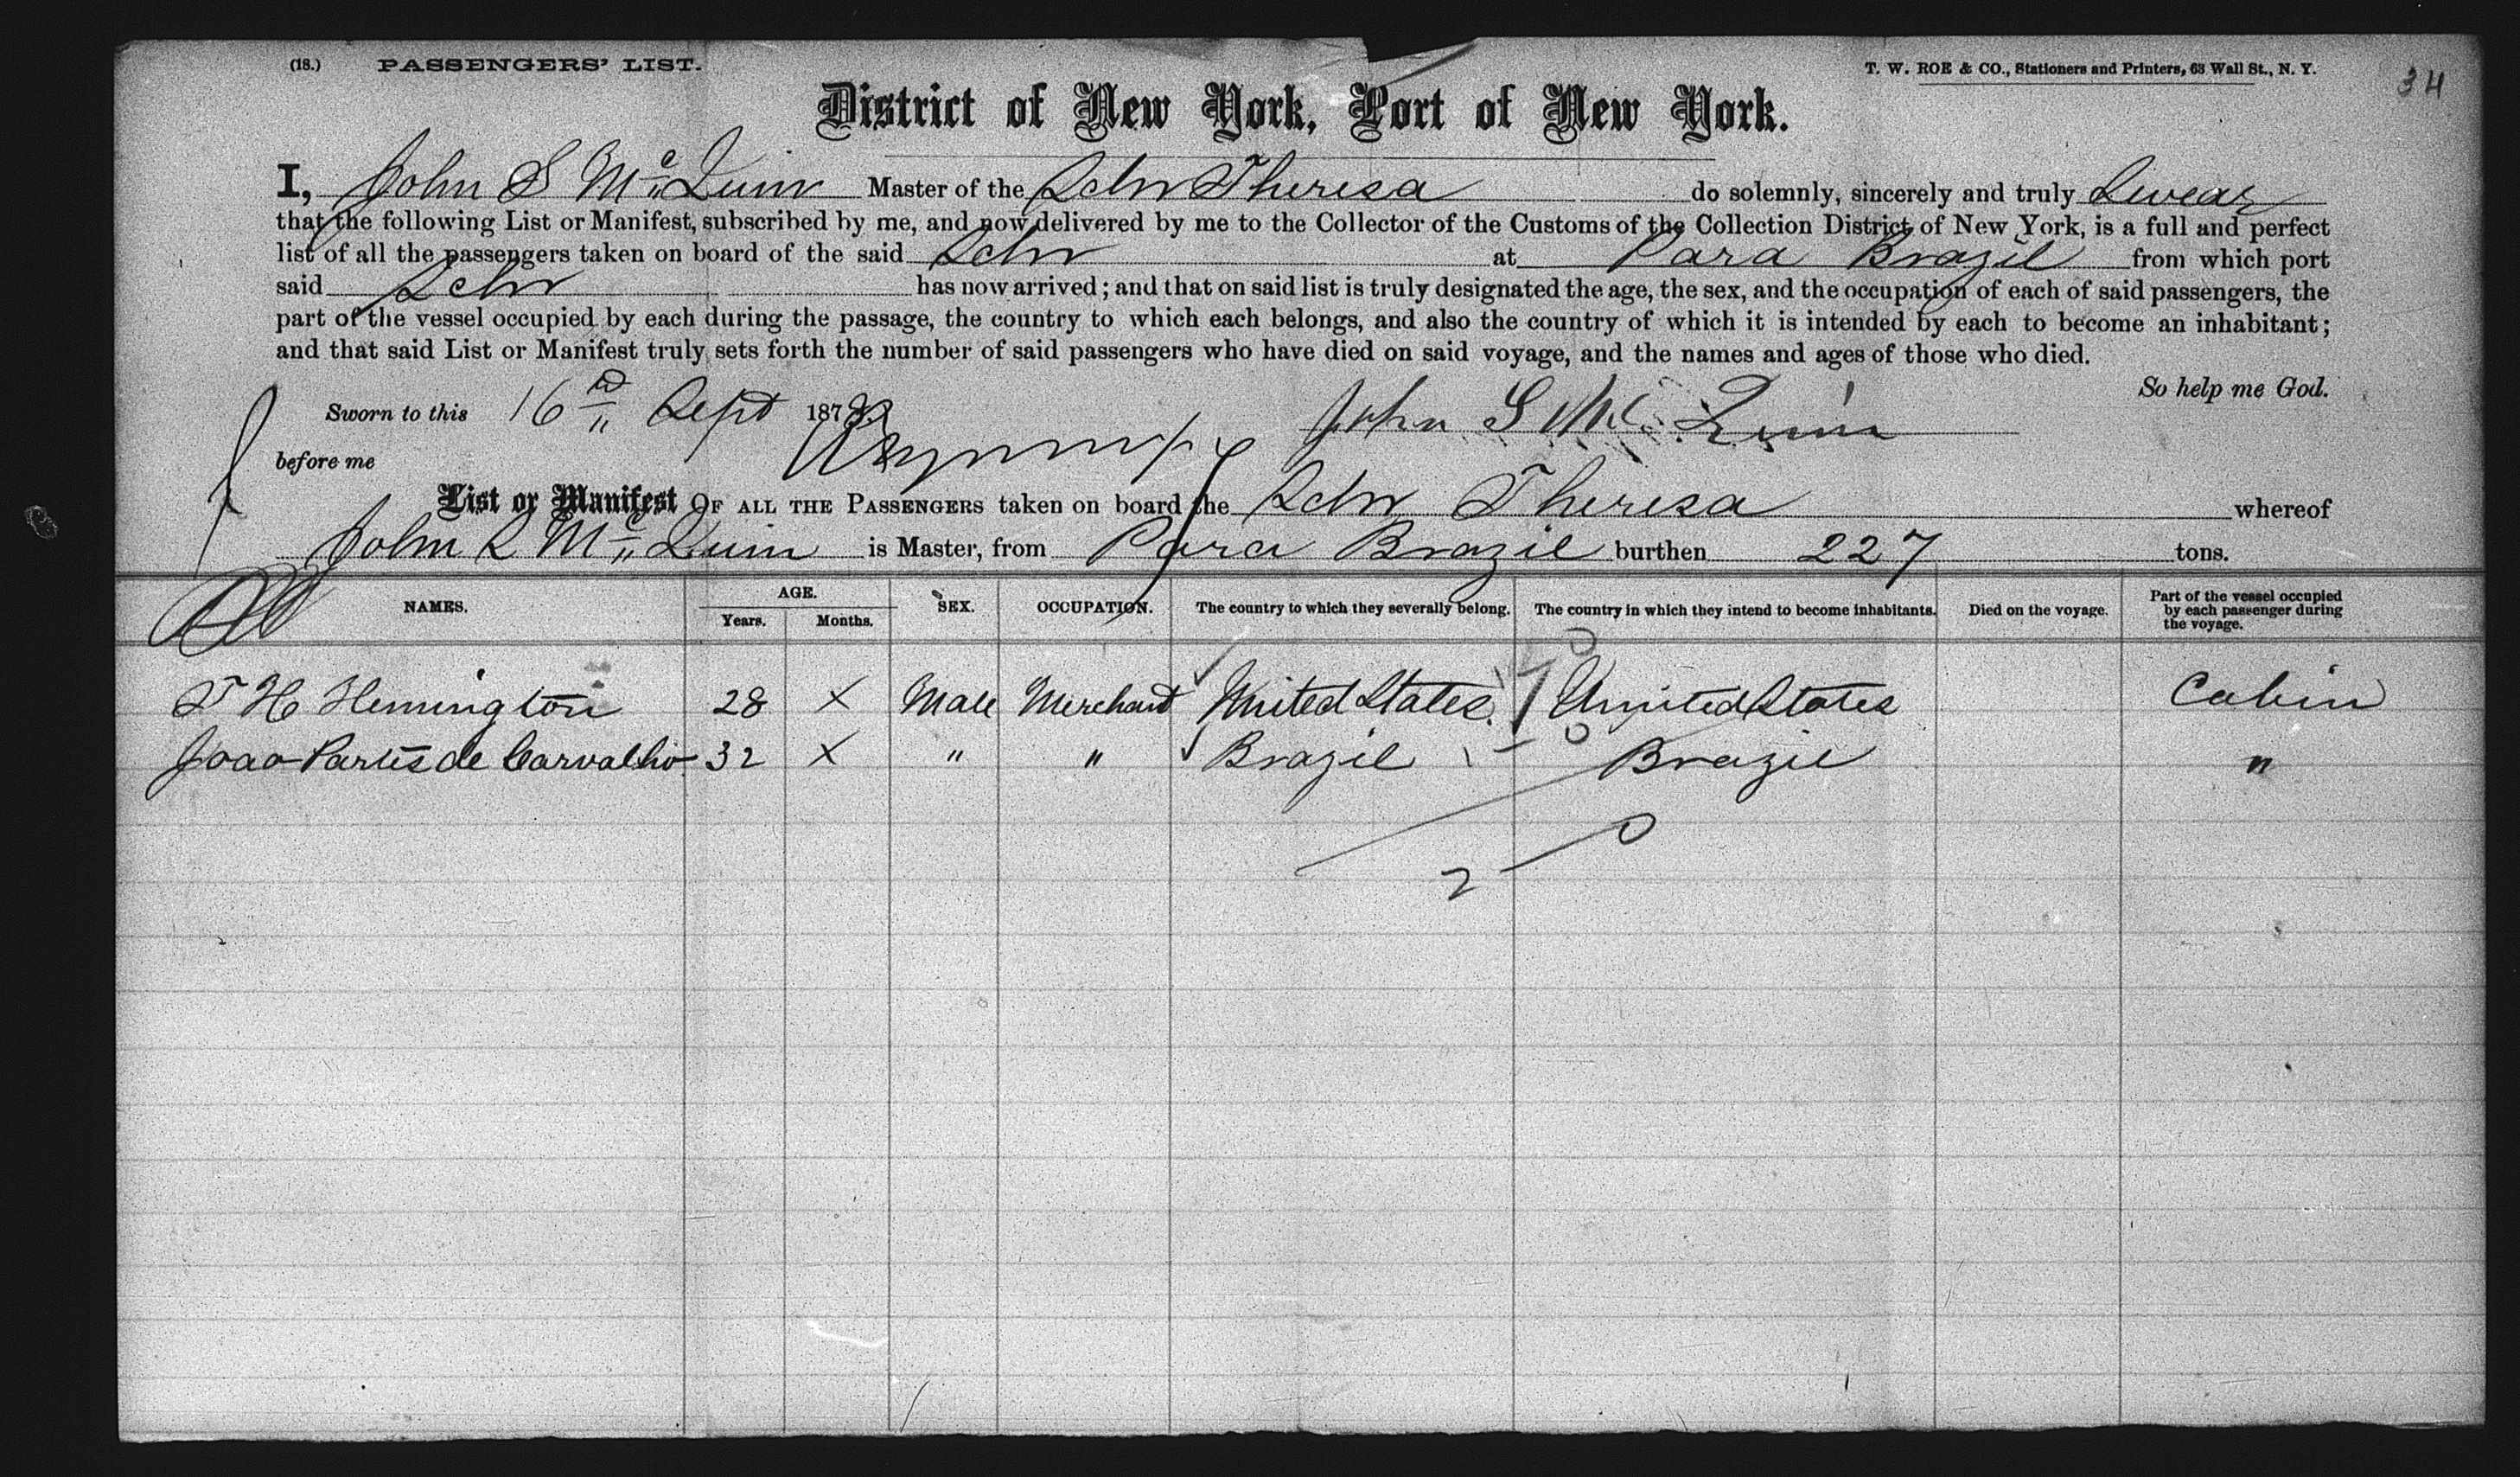 (18.) PASSENGERS' LIST. T. W. ROE & CO., Stationers and Printers, 63 Wall St., N. Y. 34
District of New York, Port of New York.
I, John S Mc Quin Master of the Schr Theresa do solemnly, sincerely and truly Swear
that the following List or Manifest, subscribed by me, and now delivered by me to the Collector of the Customs of the Collection District of New York, is a full and perfect
list of all the passengers taken on board of the said Schr at Para Brazil from which port
said Schr has now arrived; and that on said list is truly designated the age, the sex, and the occupation of each of said passengers, the
part of the vessel occupied by each during the passage, the country to which each belongs, and also the country of which it is intended by each to become an inhabitant;
and that said List or Manifest truly sets forth the number of said passengers who have died on said voyage, and the names and ages of those who died.
So help me God.
Sworn to this 16th Sept 187 John S Mc Quin
before me
List or Manifest OF ALL THE PASSENGERS taken on board the Schr Theresa whereof
John S Mc Quin is Master, from Para Brazil burthen 227 tons.
NAMES. AGE. Years. Months. SEX. OCCUPATION. The country to which they severally belong. The country in which they intend to become inhabitants. Died on the voyage. Part of the vessel occupied by each passenger during the voyage.
T H Hemington 28 X Male Merchant United States. United States Cabin
Joao de Carvalho 32 X " " Brazil Brazil "
2 0